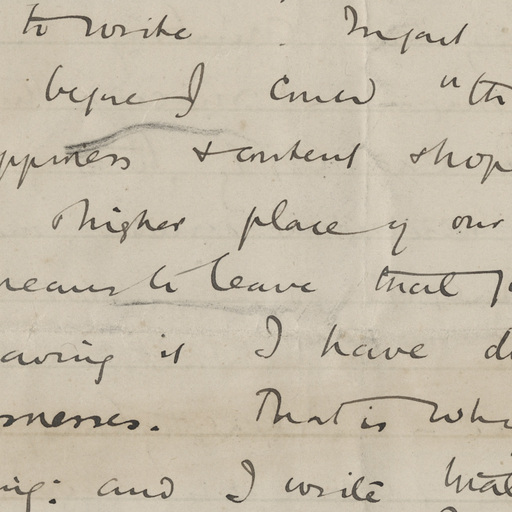 to write. In fact
before I could "th
ppiness & content shop
higher place of our
means to leave that
aving it I have d
snesses. That is why
ing: and I write that